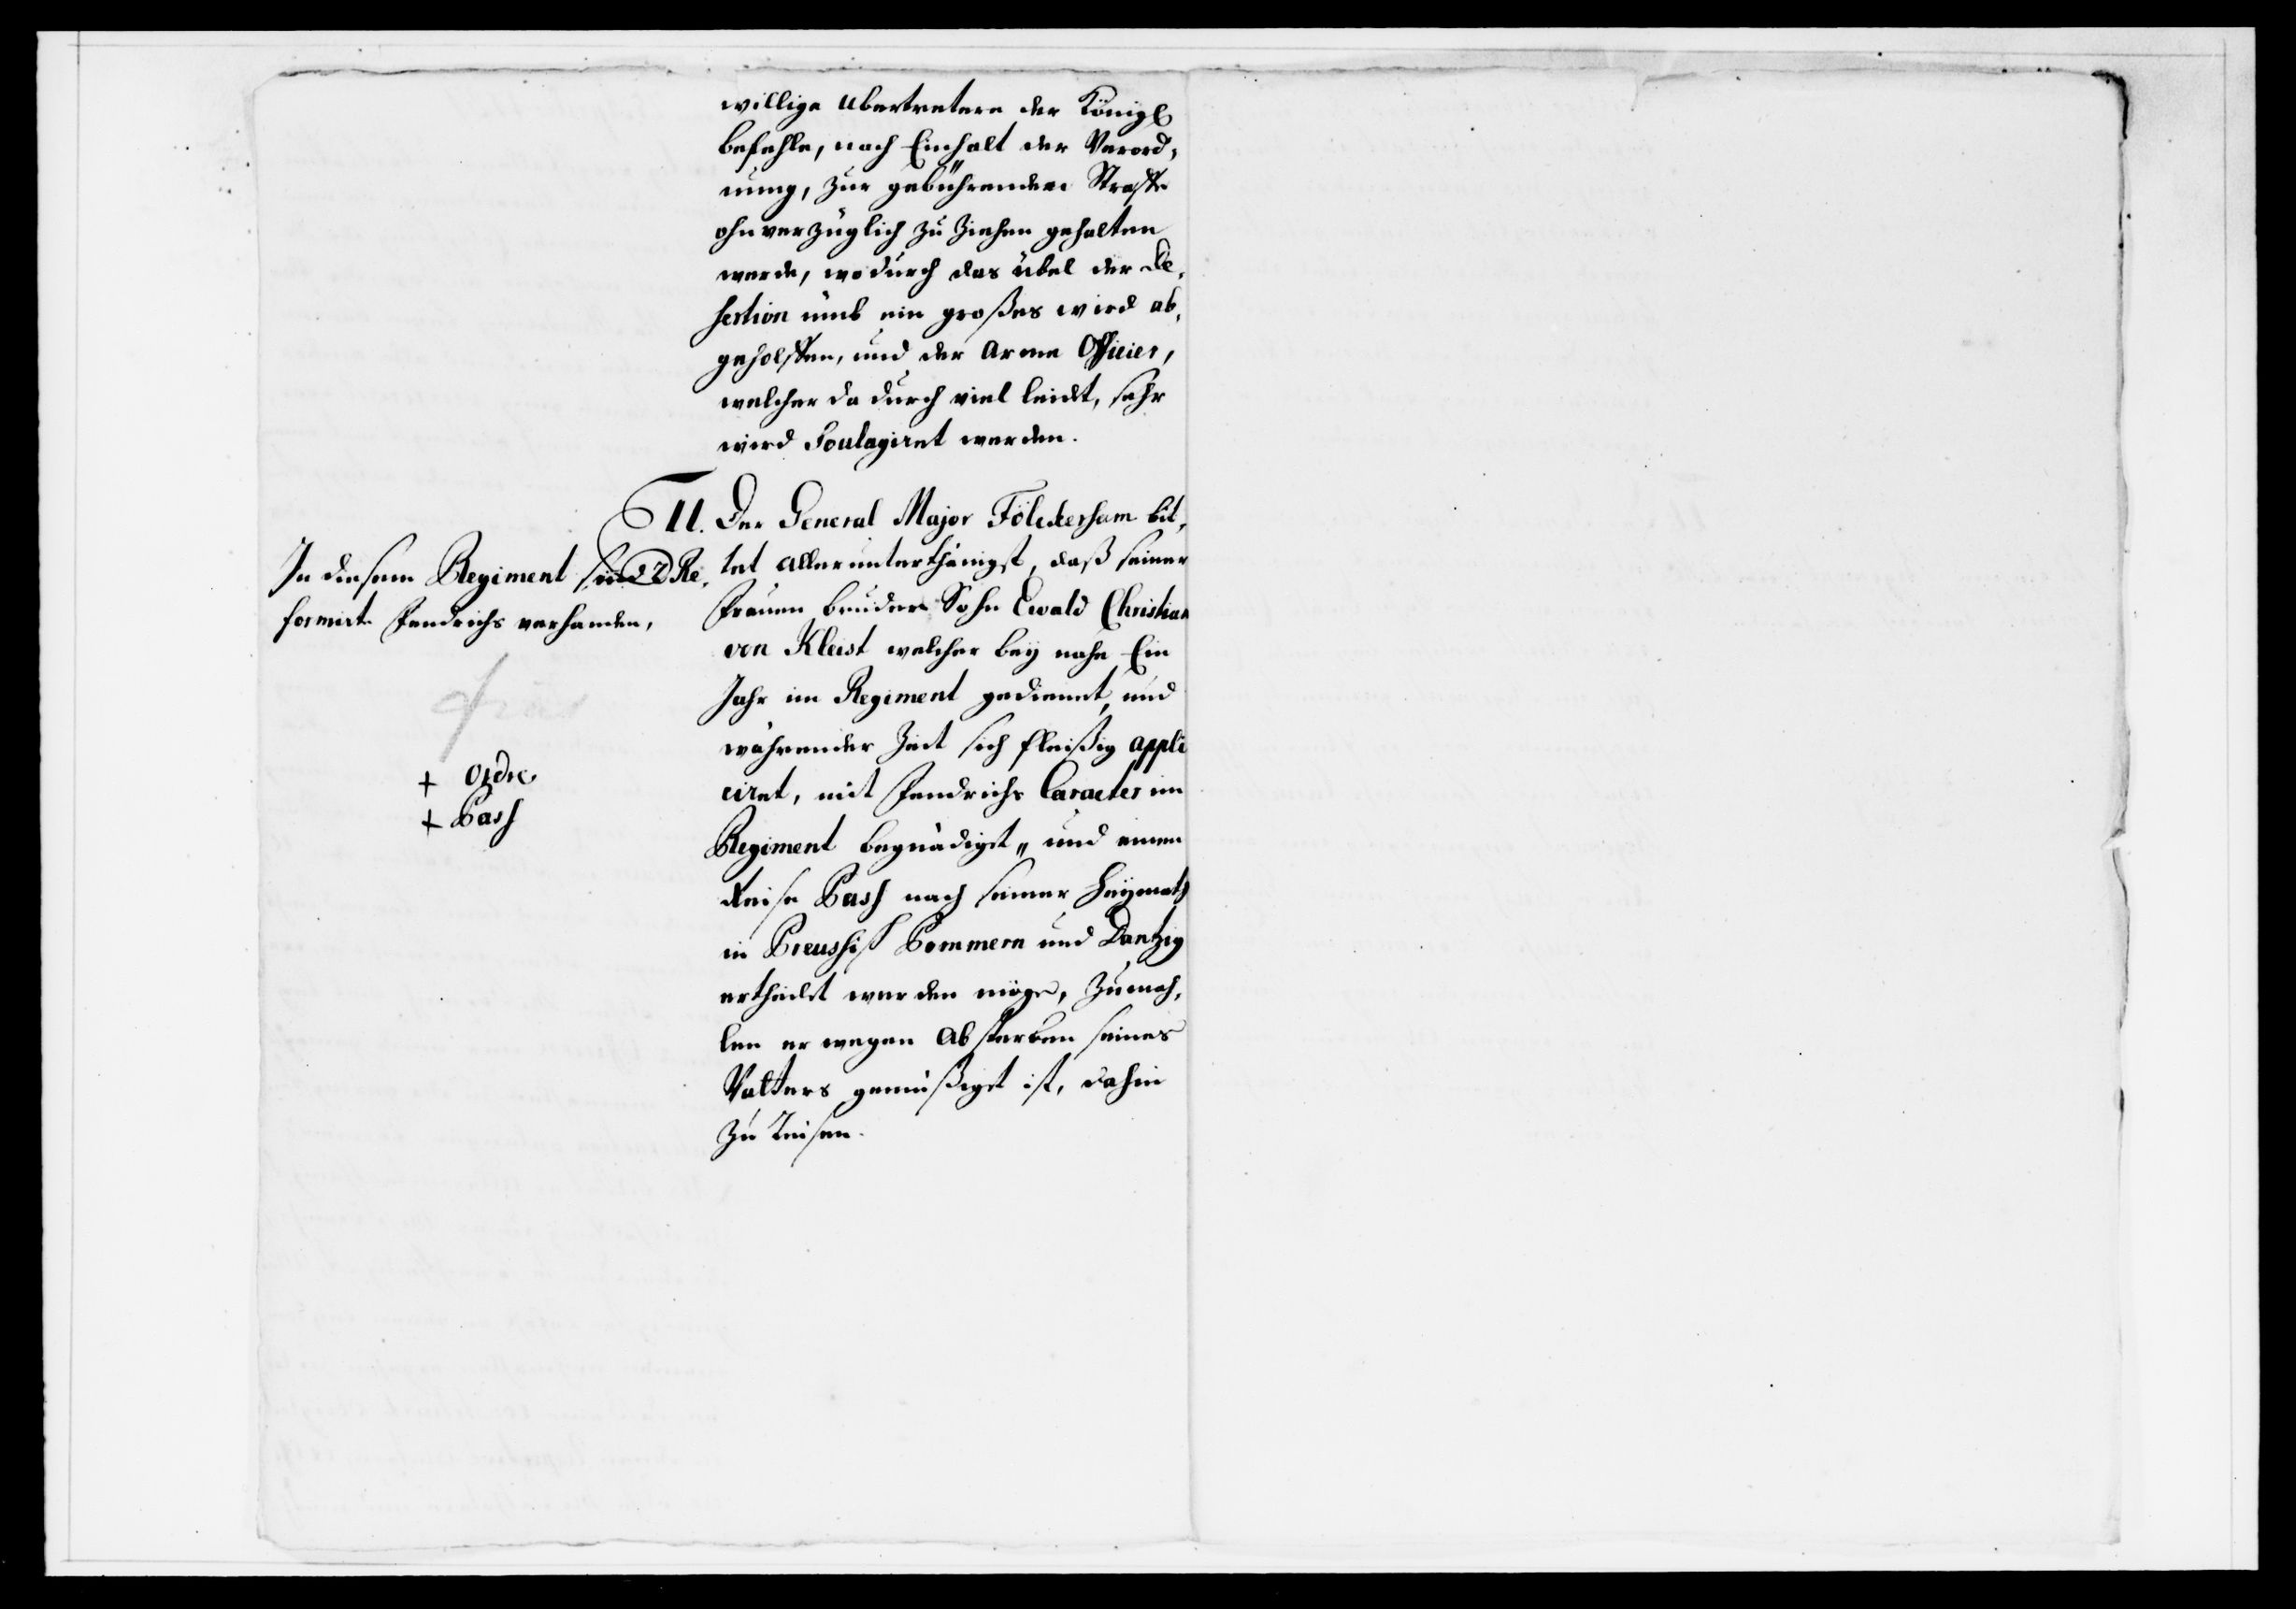 willige Ubertretere der Königl
befehle, nach Einhalt der Verord,
nung, zur gebührenden Straffe
ohnverzüglich zu ziehen gehalten
werde, wodurch das übel der De,
sertion umb ein großes wird ab,
geholffen, und der Arme Officier,
welcher da durch viel leidet, sehr
wird Soulagiret werden.
11. Der General Major Fölckersham bit,
tet allerunterthänigst, daß seiner
Frauen bruder Sohn Ewald Christian
von Kleist welcher bey nahe Ein
Jahr im Regiment gedienet, und
währender Zeit sich fleißig appli
ciret, mit Fendrichs Caracter im
Regiment begnädiget, und einen
Reise Pass nach seiner Heymath
in Preussisch Pommern und Dantzig
ertheilet werden möge, zumah,
len er wegen Absterben seines
Vatters gemüßiget ist, dahin
zu reisen.
In diesem Regiment sind 2 Re,
formirte Fendrichs verhanden,
+ Ordre
+ Pass